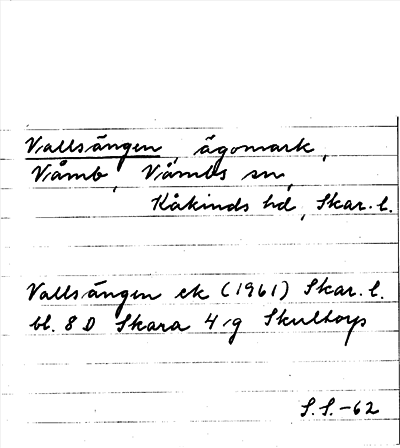 Vallsängen, ägomark,
Våmb, Våmbs sn,
Kåkinds hd, Skar. l.
Vallsängen ek (1961) Skar. l.
bl. 8 D Skara 4 g Skultorp
S.S.-62